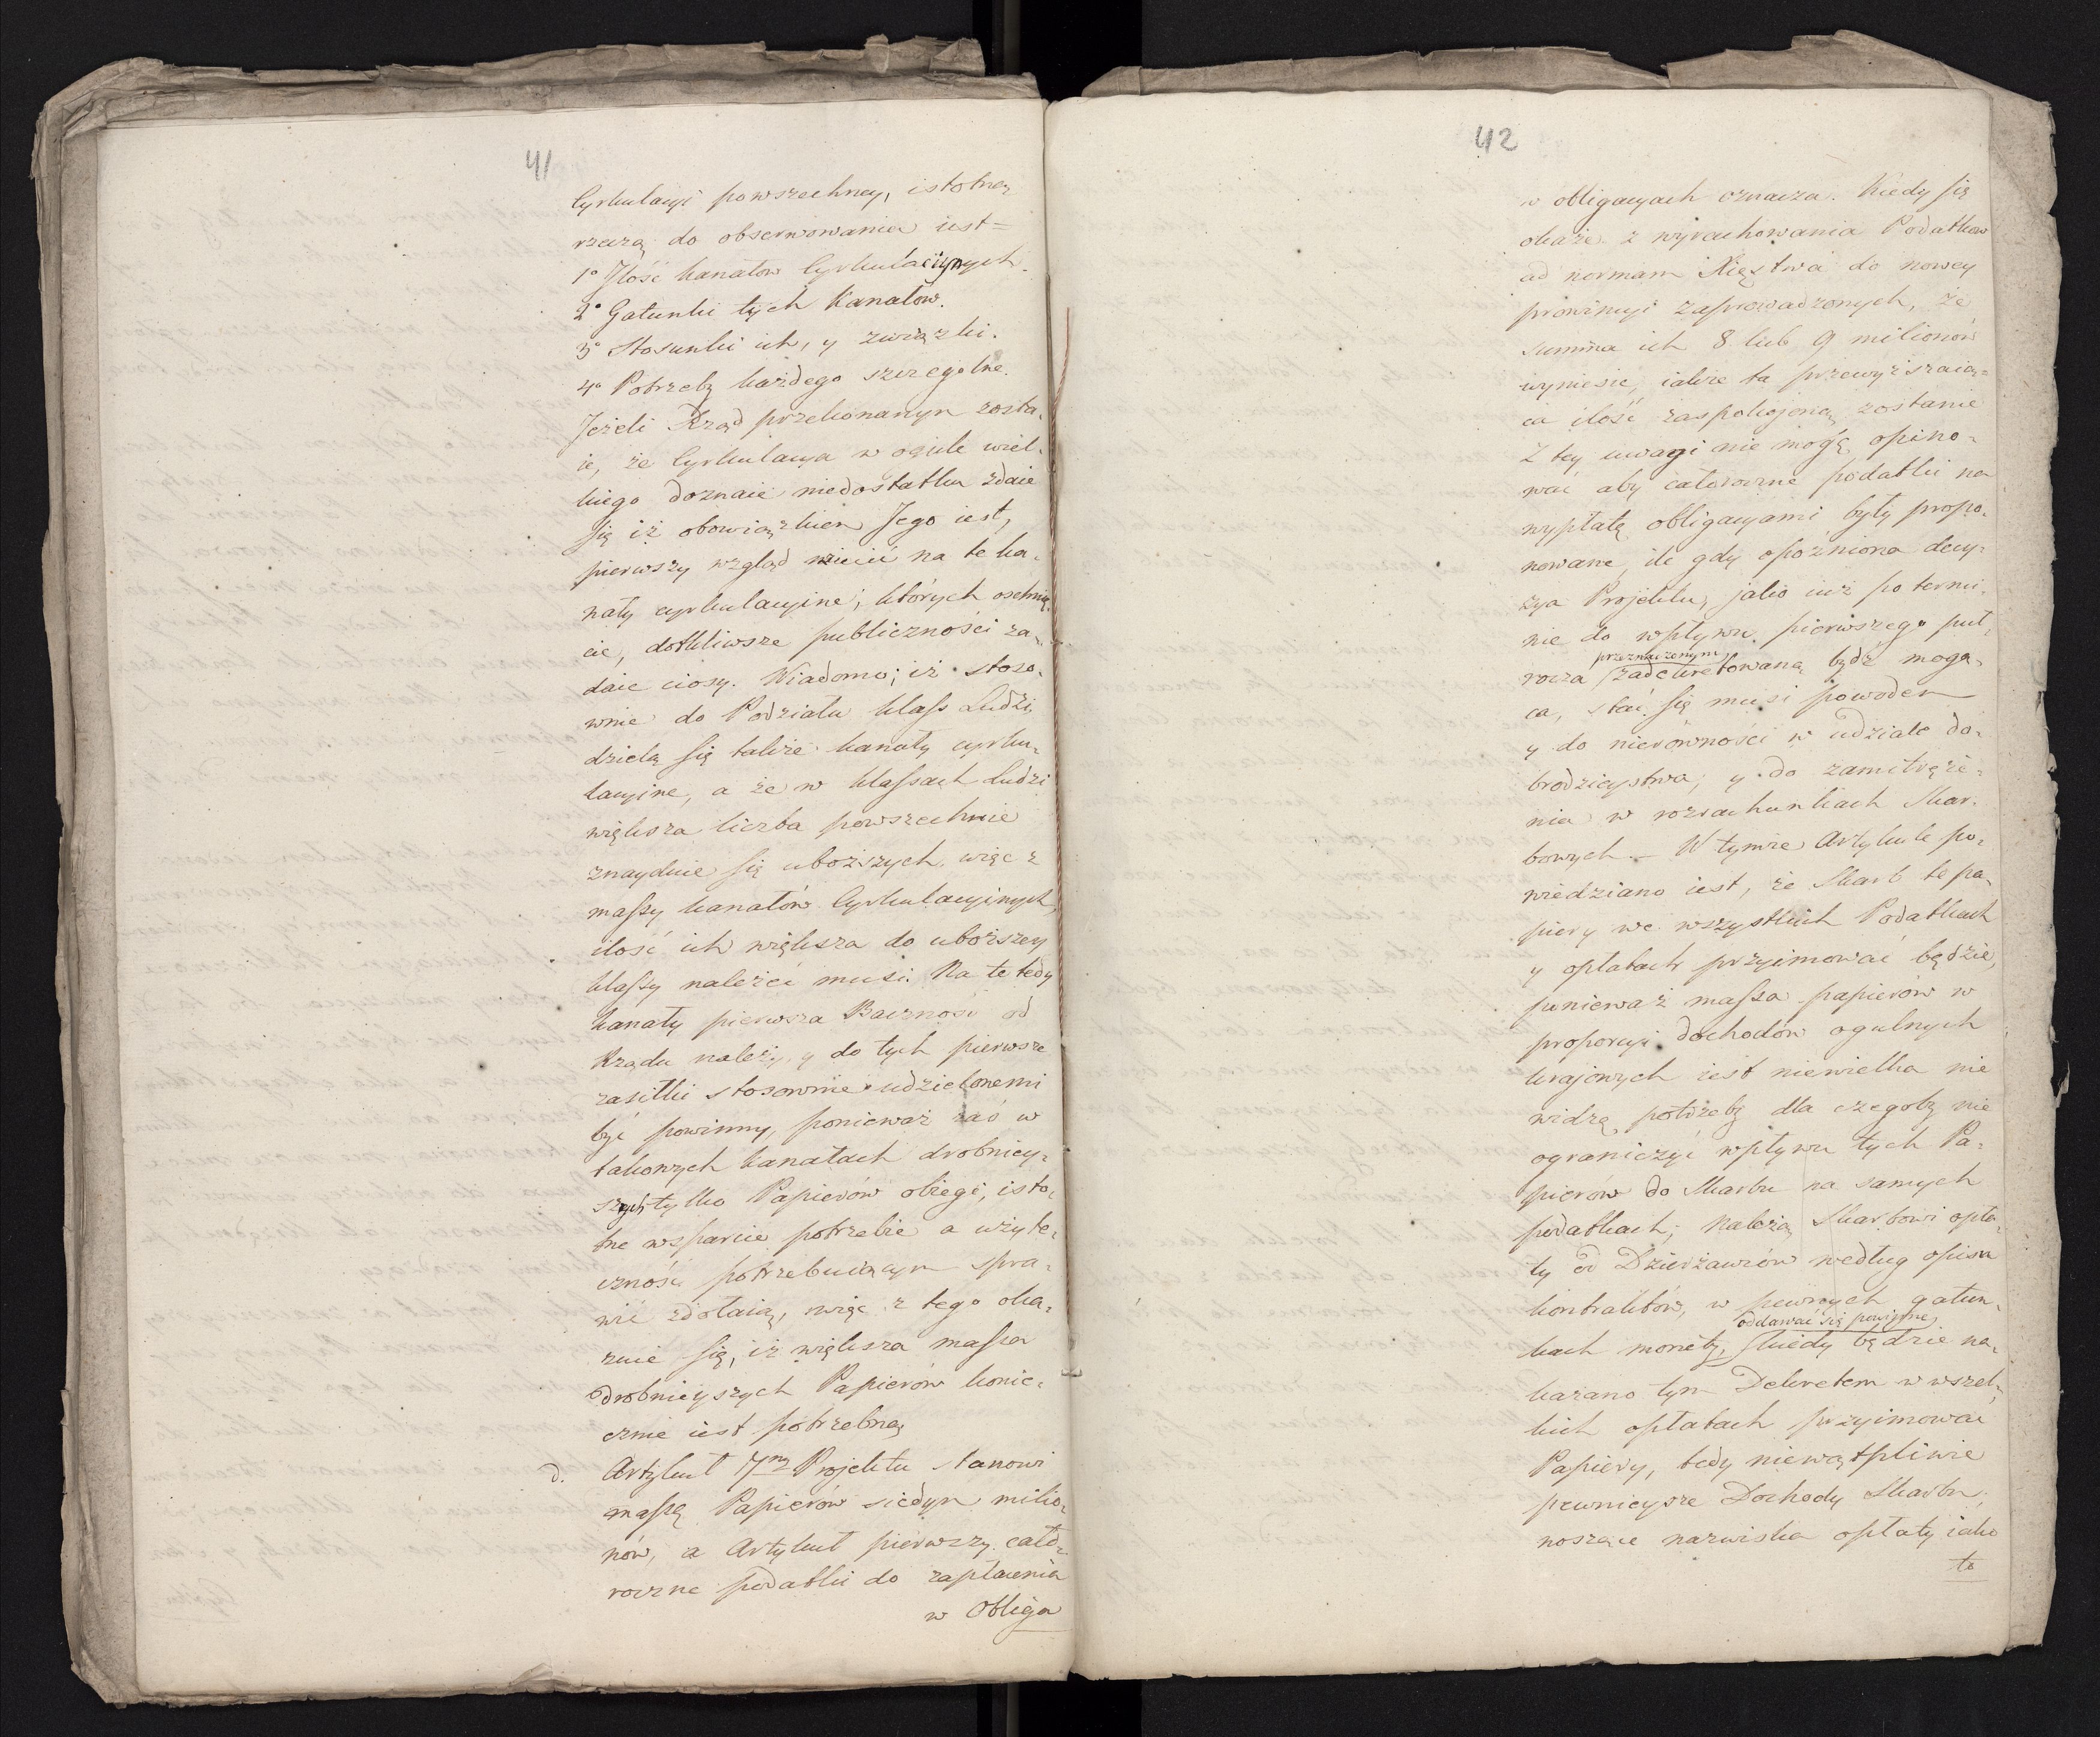 41
Cyrkulacyi powszechney, istotną
rzeczą do obserwowania iest =
1° Jlość kanałow Cyrkulacyinych.
2° Gatunki tych Kanałow.
3° Stosunki ich, y związki.
4° Potrzeby każdego szczegolne.
Jeżeli Rząd przekonanym zosta-
ie, że Cyrkulacya w ogule wiel-
kiego doznaie niedostatku zdaie
się iż obowiązkiem Jego iest,
pierwszy wzgląd mieć na te ka-
nały cyrkulacyine, których oschnię-
cie, dotkliwsze publiczności za-
daie ciosy. Wiadomo; iż stoso-
wnie do Podziału klass Ludzi
dzielą się także kanały cyrku-
lacyine, a że w klassach Ludzi
większa liczba powszechnie
znayduie się uboższych, więc z
massy kanałów Cyrkulacyinych,
ilość ich większa do uboższey
klassy należeć musi. Na te tedy
kanały pierwsza Baczność od
Rządu należy, y do tych pierwsze
zasiłki stosownie udzielonemi
być powinny, ponieważ zaś w
takowych kanałach drobniey-
szych tylko Papierów obiegi, isto-
tne wsparcie potrzebie a użyte-
czność potrzebuiącym spra-
wić zdołaią, więc z tego oka-
zuie się, iż większa massa
drobnieyszych Papierów konie-
cznie iest potrzebną
d. Artykuł 17my Projektu stanowi
massę Papierów siedym milio-
nów, a Artykuł pierwszy cało-
roczne podatki do zapłacenia
w Obliga
42
w obligacyach oznacza. Kiedy się
okaże z wyrachowania Podatkow
ad normam Xięstwa do nowey
prowincyi zaprowadzonych, że
summa ich 8 lub 9 milionów
wyniesie, iakże ta przewyższaią-
ca ilość zaspokojoną zostanie
Z tey uwagi nie mogę opino-
wać aby całoroczne podatki na
wypłatę obligacyami były propo-
nowane, ile gdy opozniona decy-
zya Projektu, jako iuż po termi-
nie do wpływu pierwszego puł-
przeznaczonym
rocza zadekretowaną bydź mogą-
ca, stać się musi powodem
y do nierówności w udziale do-
brodzieystwa, y do zamitręże-
nia w rozrachunkach Skar-
bowych – W tymże Artykule po-
wiedziano iest, że Skarb te pa-
piery we wszystkich Podatkach
y opłatach przyimować będzie,
ponieważ massa papierów w
proporcyi dochodów ogulnych
krajowych iest niewielka nie
widzę potrzeby dla czegoby nie
ograniczyć wpływu tych Pa-
pierów do Skarbu na samych
podatkach; Należą Skarbowi opła-
ty od Dzierżawców według opisu
kontraktów, w pewnych gatun-
oddawać się powinne,
kach monety, kiedy będzie na-
kazano tym Dekretem w wszel-
kich opłatach przyimować
Papiery, tedy niewątpliwie
pewnieysze Dochody Skarbu,
noszące nazwiska opłaty iako
to